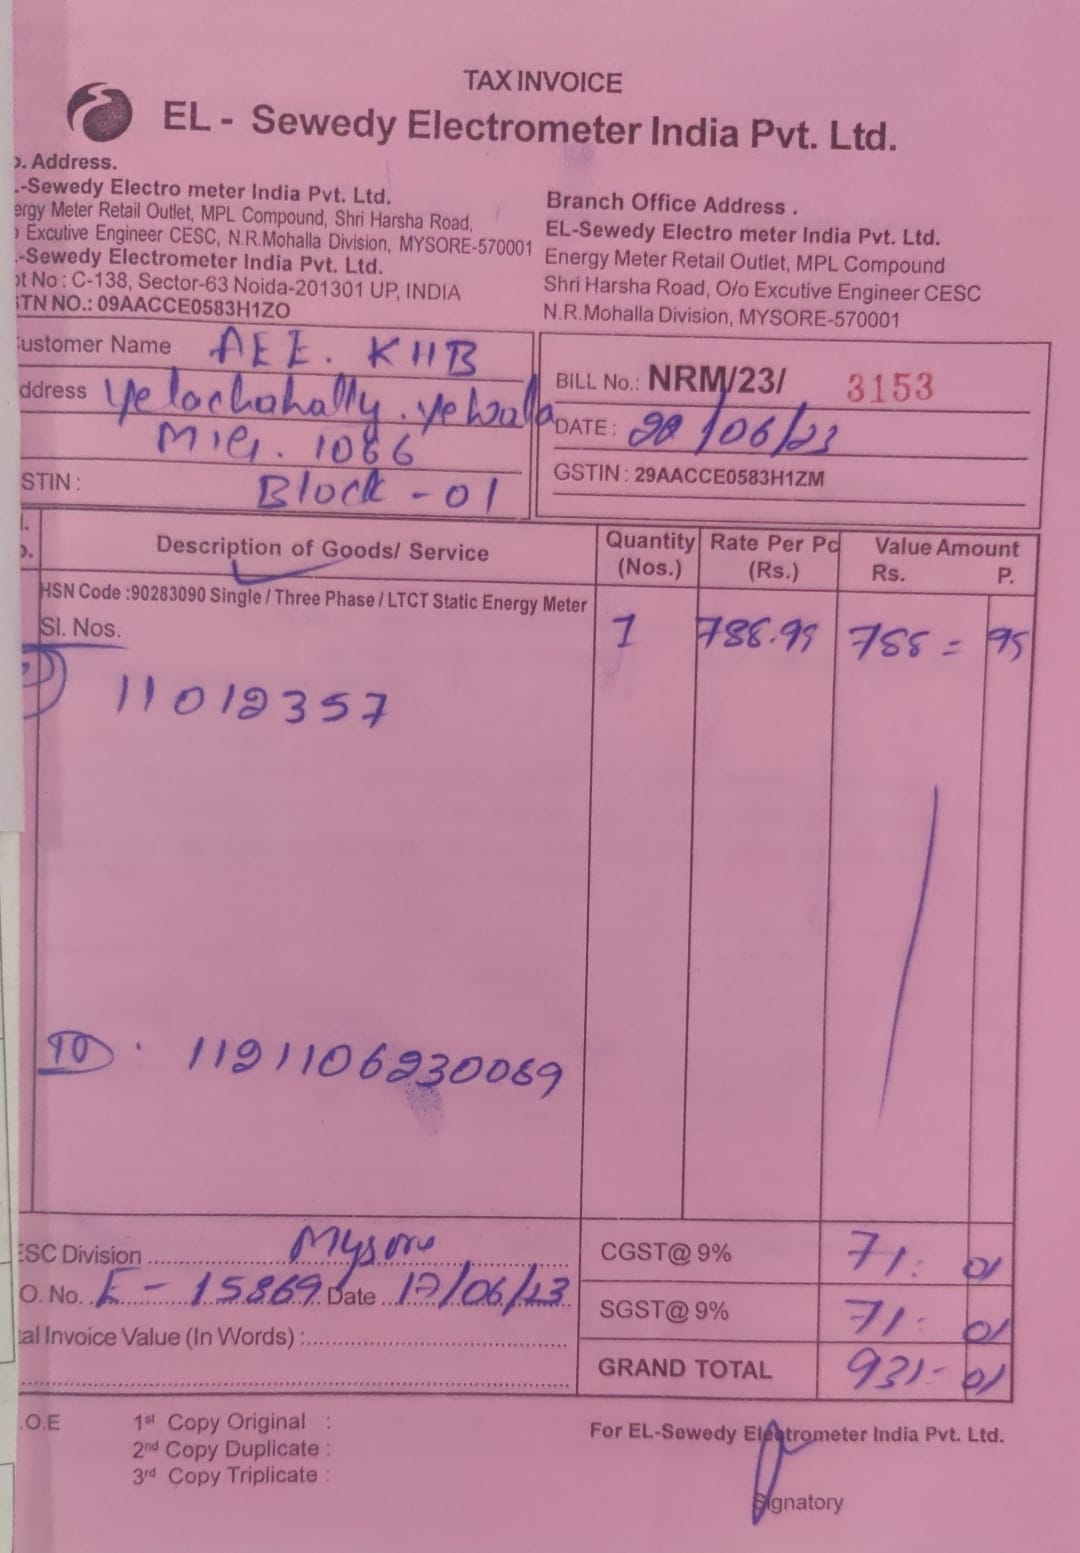 TAX INVOICE
EL - Sewedy Electrometer India Pvt. Ltd.
. Address.
-Sewedy Electro meter India Pvt. Ltd.
ergy Meter Retail Outlet, MPL Compound, Shri Harsha Road,
Excutive Engineer CESC, N.R.Mohalla Division, MYSORE-570001
-Sewedy Electrometer India Pvt. Ltd.
ot No : C-138, Sector-63 Noida-201301 UP, INDIA
STN NO.: 09AACCE0583H1ZO
Branch Office Address .
EL-Sewedy Electro meter India Pvt. Ltd.
Energy Meter Retail Outlet, MPL Compound
Shri Harsha Road, O/o Excutive Engineer CESC
N.R.Mohalla Division, MYSORE-570001
ustomer Name AEE. KHB
ddress Yelachahally. yewala
MIG. 1086
STIN : Block - 01
BILL No.: NRM/23/ 3153
DATE : 20/06/23
GSTIN : 29AACCE0583H1ZM
Description of Goods/ Service
Quantity (Nos.)
Rate Per Pc (Rs.)
Value Amount
Rs. P.
HSN Code :90283090 Single / Three Phase / LTCT Static Energy Meter
Sl. Nos.
1 788.99 788 = 95
11012357
ID : 1121106230069
ESC Division Mysore
O. No. E - 15869 Date 17/06/23
al Invoice Value (In Words) :
CGST@ 9% 71: 01
SGST@ 9% 71: 01
GRAND TOTAL 931- 01
.O.E
1st Copy Original :
2nd Copy Duplicate :
3rd Copy Triplicate :
For EL-Sewedy Electrometer India Pvt. Ltd.
Signatory